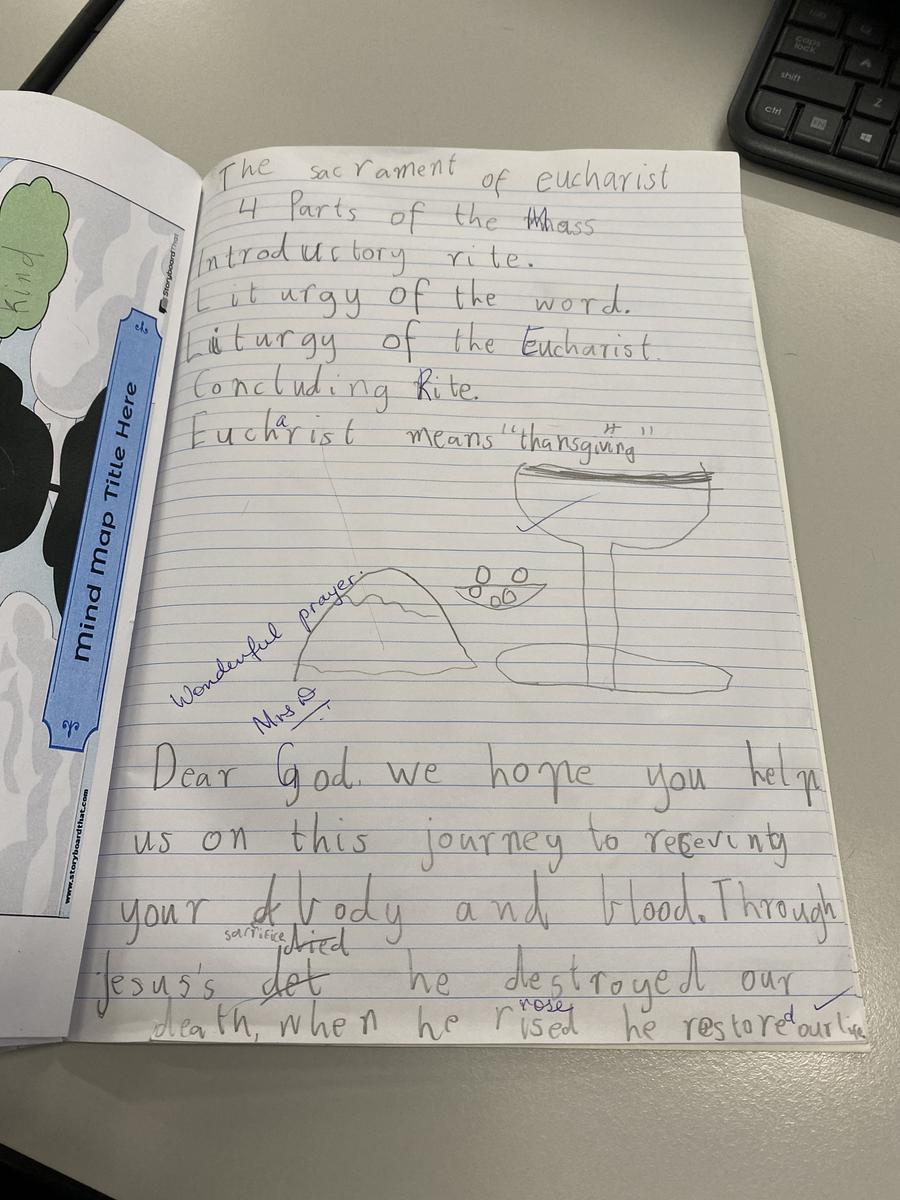 The sacrament of eucharist
4 Parts of the Mass
Introductory rite.
Liturgy of the word.
Liturgy of the Eucharist.
Concluding Rite.
Eucharist means "thansgiving"
Wonderful prayer.
Mrs D
Dear God. we hope you help
us on this journey to receving
your body and blood. Through
sacrifice died
Jesus's det he destroyed our
rose
death, when he rised he restored our life
Kind
StoryboardThat
Mind Map Title Here
www.storyboardthat.com
tab
caps lock
A
shift
Z
ctrl
fn